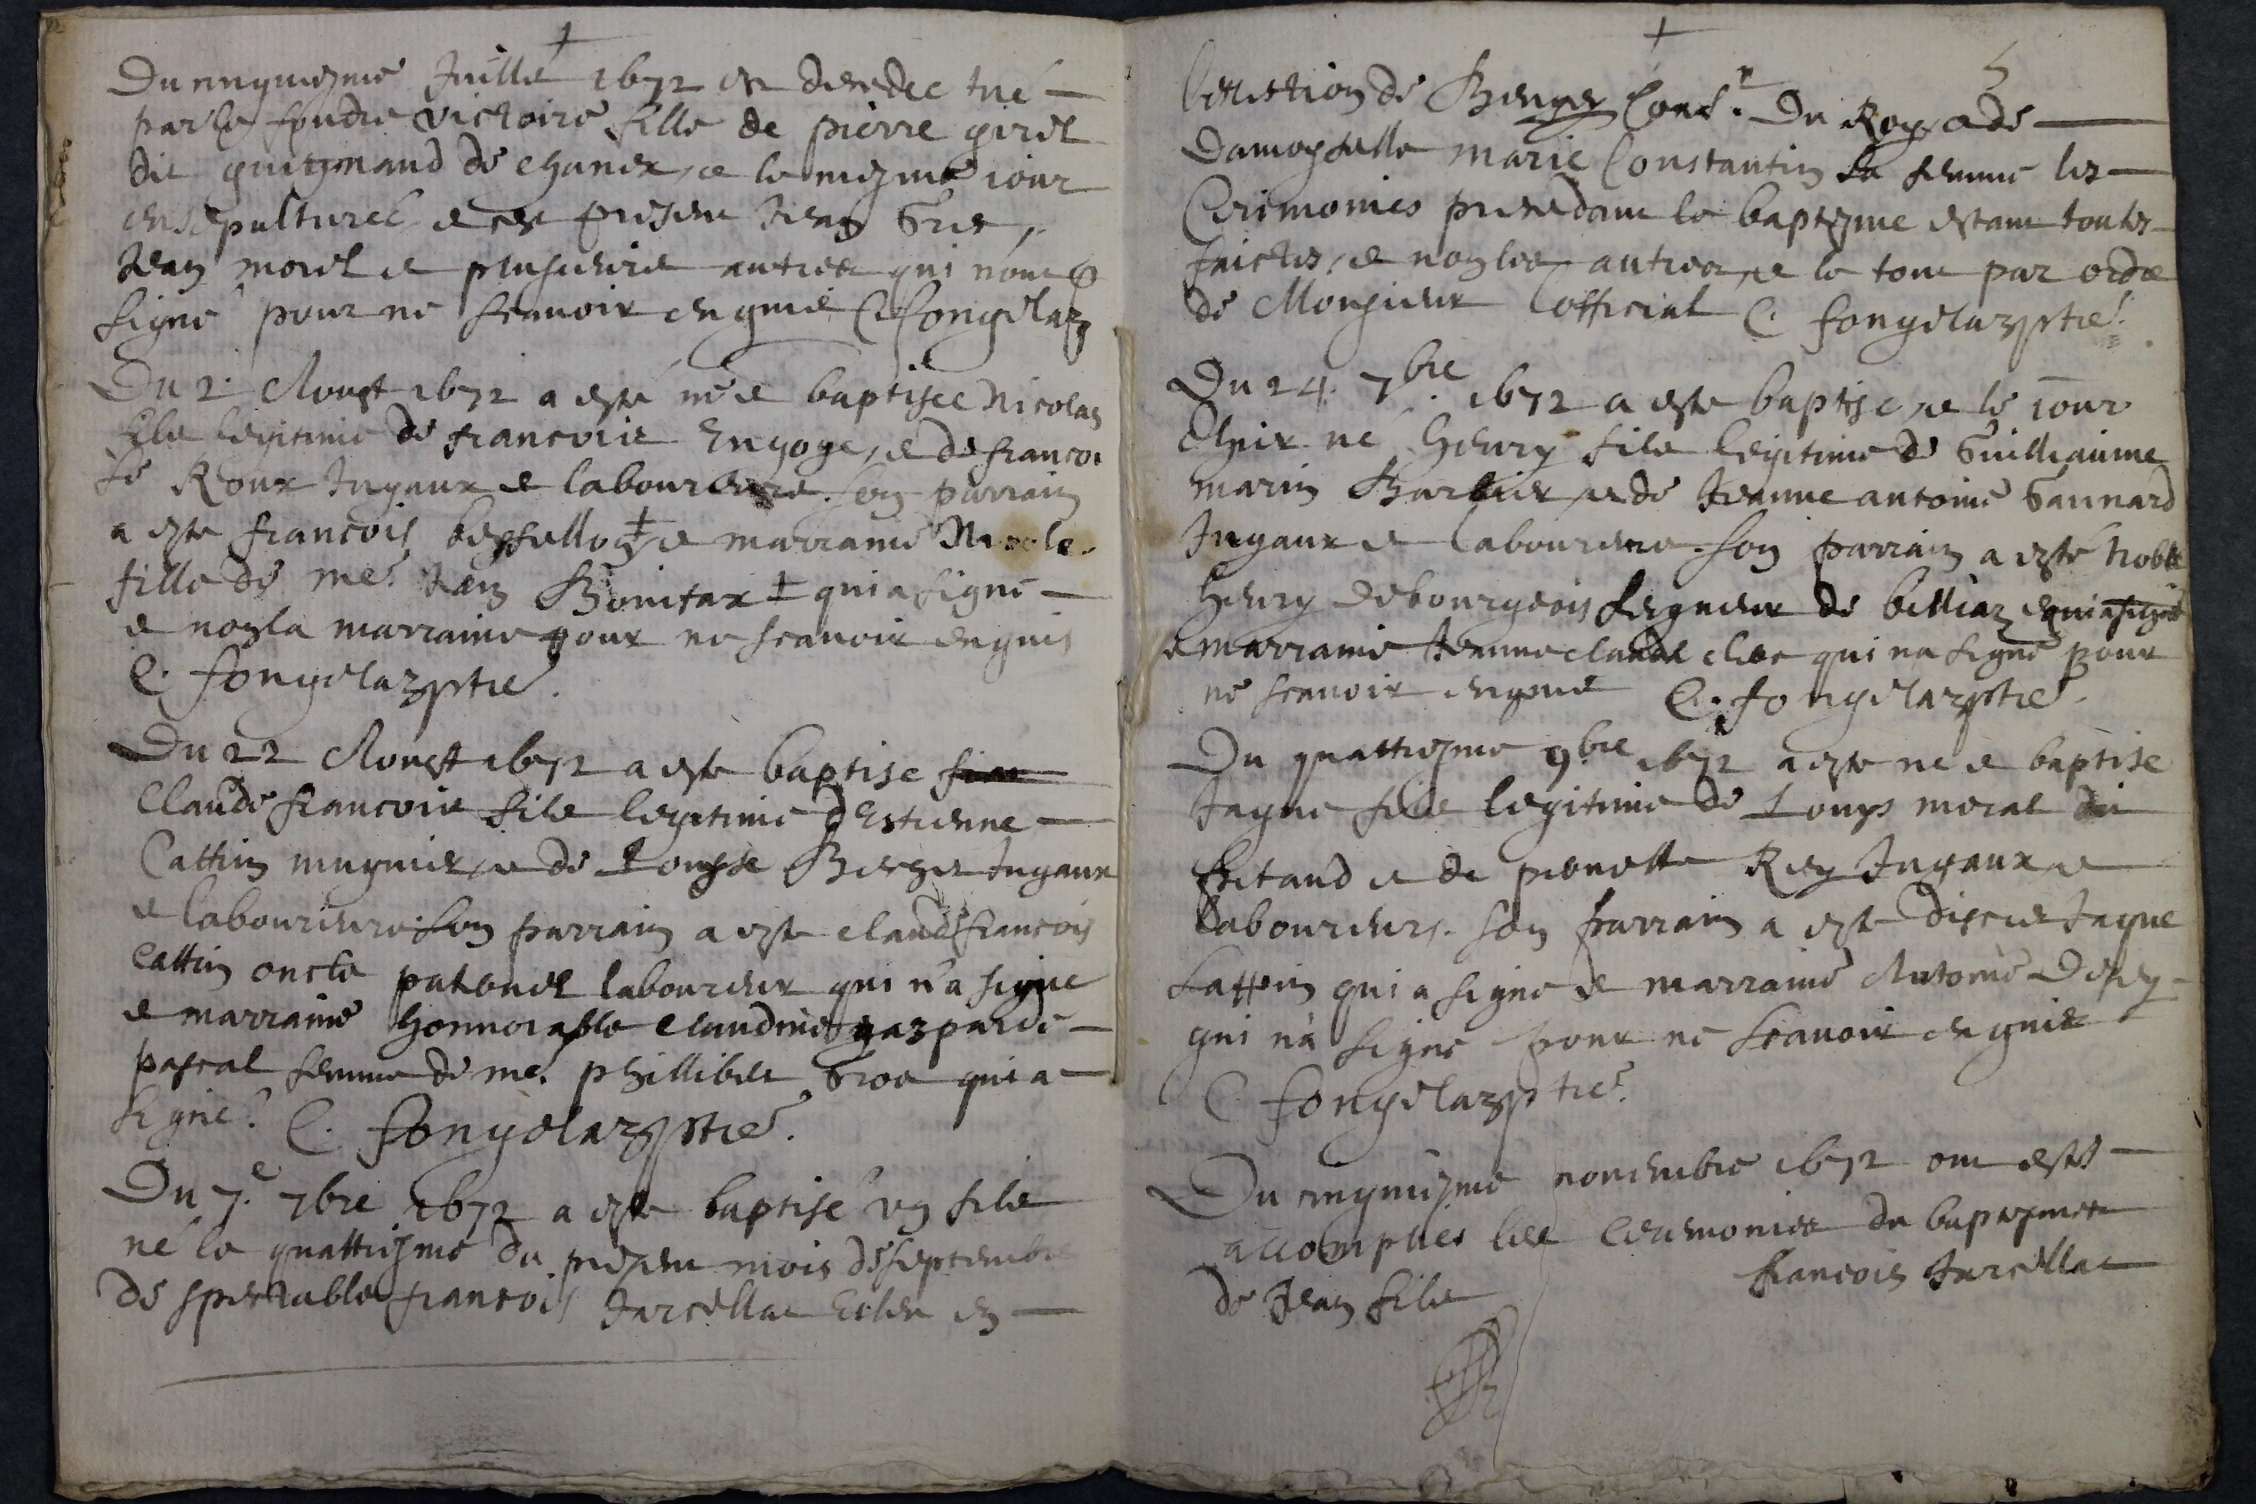 Du cinquiesme Juillé 1672 est decedée tué
par le foudre victoire fille de pierre girel
dit guignand de chanex, e le mesme iour
ensepulturée, e est present Jean Gris,
Jean morel e plusieurs autres qui nont
signé pour ne scauoir enquis C. fongelaz
Du 2. Aoust 1672 a esté né e baptisee Nicolas
fils legitime de francois Engoge, e de francoi
se Roux Jugaux e laboureurs. son parrain
a este francois e marraine
fille de me. Jean Bonifax qui a signé
e non la marraine pour ne scauoir enquis
C. fongelaz pstre.
Du 22 Aoust 1672 a este baptise
Claude francois fils legitime d'Estienne
Cattin mugnier, e de Louyse Berger Jugaux
e laboureurs. son parrain a este claude francois
cattin oncle paternel laboureur qui n'a signe
e marraine honnorable claudine gasparde
pascal femme de me. phillibert Gros qui a
signé. C. fongelaz pstre.
Du 7.e 7bre 1672 a este baptisé vn fils
né le quattriesme du present mois de septembre
de spectable francois Jarcellat Esleu en
l'ellection de Bengex Cons.r du Roy, e de
damoyselle marie Constantin sa femme les
Cerimonies precedant le baptesme estant toutes
faictes, e non les autres, e le tout par ordre
de Monsieur l'official C. fongelaz pstre.
Du 24. 7bre. 1672 a este baptisé, e le iour
né henry fils legitime de Guilliaume
marin Barbier, e de Jeanne antoine Gaunard
Jugaux e laboureurs. son parrain a esté noble
henry debourgeois seigneur de billiaz e qui a signé
e marraine Jeanne claude clerc qui na signé pour
ne scauoir enquis C. fongelaz pstre.
Du quattriesme 9bre. 1672 a este né e baptisé
Jaque fils legitime de Louys moral dit
fretaud e de pernette Rey Jugaux e
laboureurs. son parrain a este discret Jaque
Lappin qui a signé e marraine Antoine
qui n'a signé pour ne scauoir enquise
C. fongelaz pstre.
Du cinquiesme nouembre 1672 ont estés
accomplies les ceremonies du baptesme
de Jean fils francois Jarcellat